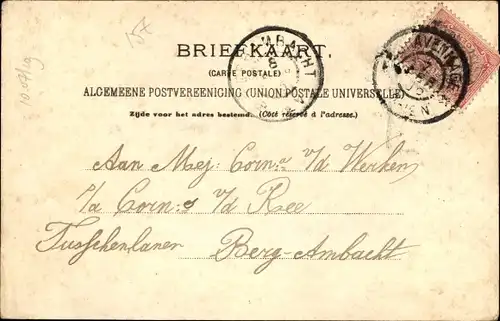 57
BRIEFKAART.
(CARTE POSTALE)
ALGEMEENE POSTVEREENIGING (UNION POSTALE UNIVERSELLE)
Zijde voor het adres bestemd. (Côté réservé à l'adresse.)
Aan Mej: Corn:a v/d Werken
p/a Corn:s v/d Ree
Tusschenlanen Berg-Ambacht